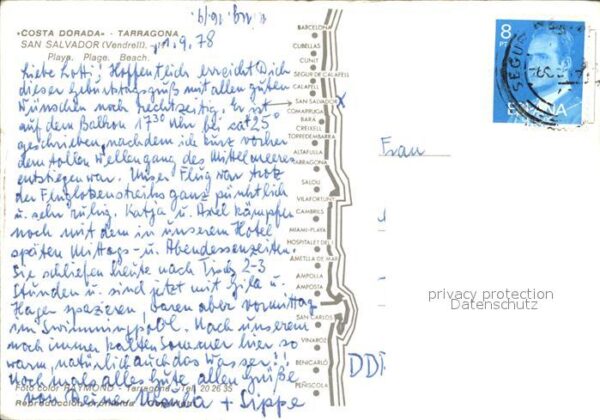 «COSTA DORADA» - TARRAGONA
SAN SALVADOR (Vendrell).
Playa. Plage. Beach.
1.9.78
Liebe Lotti! Hoffentlich erreicht Dich
dieser Geburtstagsgruß mit allen guten
Wünschen noch rechtzeitig. Er ist
auf dem Balkon 17³⁰ Uhr bei ca 25°
geschrieben, nachdem ich kurz vorher
dem tollen Wellengang des Mittelmeeres
entstiegen war. Unser Flug war trotz
der Fluglotsenstreiks ganz pünktlich
u. sehr ruhig. Katja u. Axel kämpfen
noch mit dem in unserem Hotel
späten Mittags- u. Abendessenzeiten.
Sie schliefen heute nach Tisch 2-3
Stunden u. sind jetzt mit Gila u.
Hagen spazieren, waren aber vormittag
im Swimmingpool. Nach unserem
noch immer kalten Sommer hier so
warm, natürlich auch das Wasser!!
Nochmals alles Gute, allen Grüße
von Deiner + Sippe
Foto color RAYMOND - Tarragona - Tel. 20 26 35
BARCELONA
CUBELLAS
CUNIT
SEGUR DE CALAFELL
CALAFELL
SAN SALVADOR X
COMARRUGA
BARA
CREIXELL
TORREDEMBARRA
ALTAFULLA
TARRAGONA
SALOU
VILAFORTUNY
CAMBRILS
MIAMI-PLAYA
HOSPITALET DEL I.
AMETLLA DE MAR
AMPOLLA
AMPOSTA
SAN CARLOS
VINAROZ
BENICARLÓ
PEÑISCOLA
8
PTA
ESPAÑA
SEGUR
Frau
DDR
privacy protection
Datenschutz